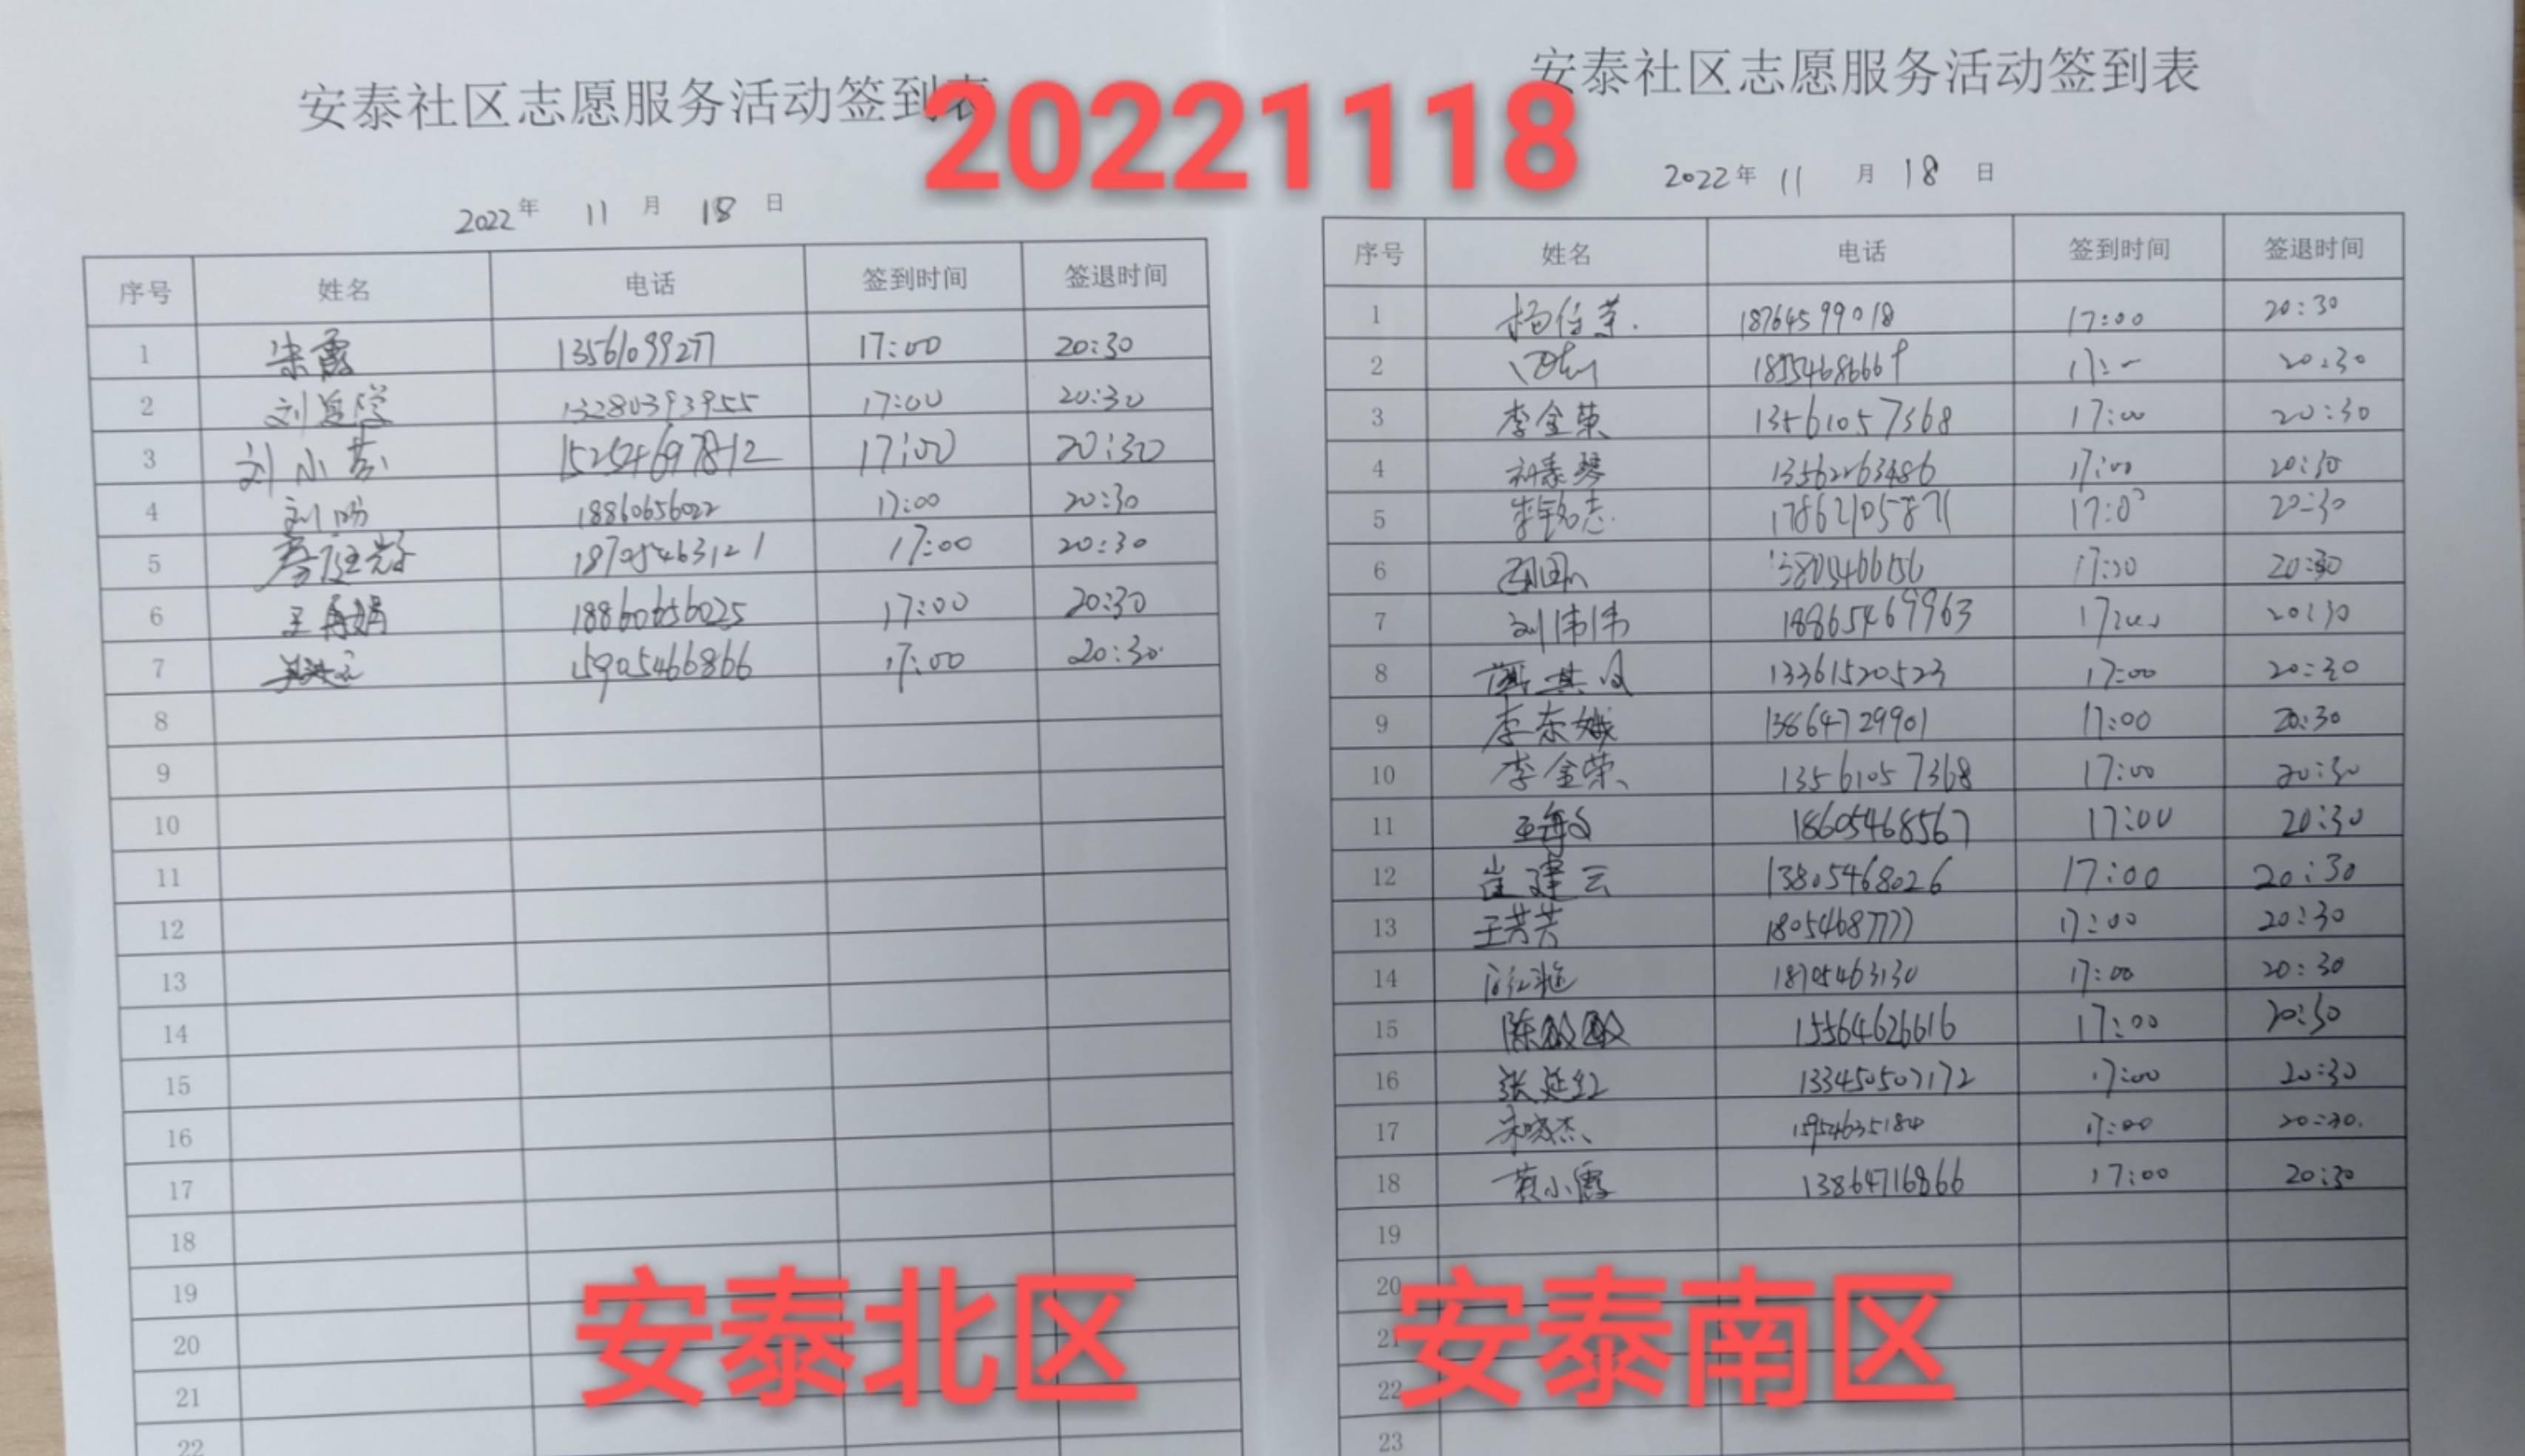 安泰社区志愿服务活动签到表
20221118
2022年 11 月 18 日
序号 姓名 电话 签到时间 签退时间
1 宋霞 13561099277 17:00 20:30
2 刘 13280393955 17:00 20:30
3 刘小 15254697812 17:00 20:30
4 刘 18860656022 17:00 20:30
5 18705463121 17:00 20:30
6 王再娟 18860656025 17:00 20:30
7 15905466866 17:00 20:30
8
9
10
11
12
13
14
15
16
17
18
19
20
21
22
安泰北区
安泰社区志愿服务活动签到表
2022年 11 月 18 日
序号 姓名 电话 签到时间 签退时间
1 杨 18764599018 17:00 20:30
2 20:30
3 李金荣 13561057368 17:00 20:30
4 13562263486 17:00 20:30
5 李 志 17862105871 17:00 20:30
6 20:30
7 刘伟伟 18865469963 17:00 20:30
8 13361520523 17:00 20:30
9 李东娥 13864729901 17:00 20:30
10 李金荣 13561057368 17:00 20:30
11 王 18605468567 17:00 20:30
12 崔建云 13805468026 17:00 20:30
13 王芳芳 18054687777 17:00 20:30
14 18705463130 17:00 20:30
15 陈敏敏 15564626616 17:00 20:30
16 张延红 133450507172 17:00 20:30
17 宋晓杰 15954635184 17:00 20:30
18 黄小霞 13864716866 17:00 20:30
19
20
21
22
23
安泰南区